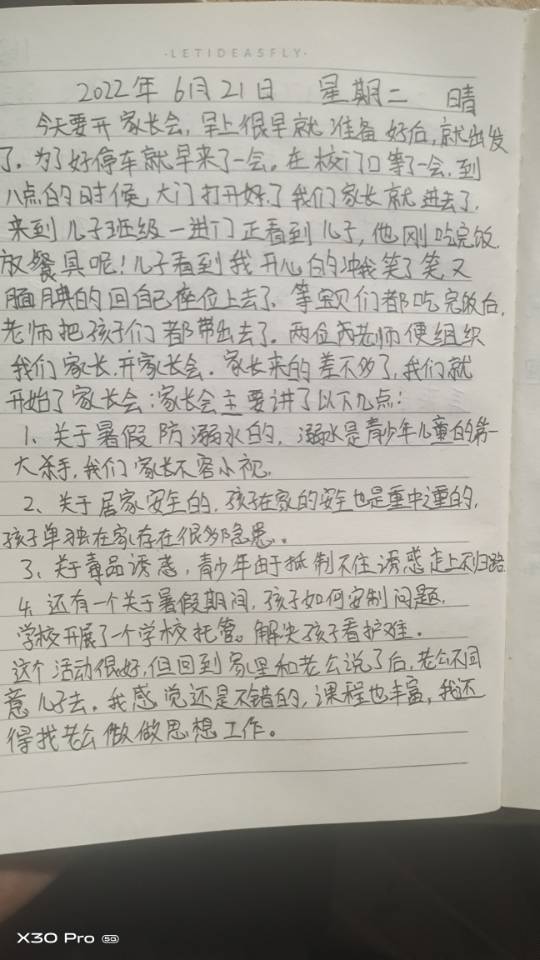 ·LETIDEASFLY·
2022年 6月21日 星期二 晴
今天要开家长会,早上很早就准备好后,就出发
了.为了好停车就早来了一会.在校门口等了一会,到
八点的时候,大门打开好了我们家长就进去了.
来到儿子班级一进门正看到儿子,他刚吃完饭
放餐具呢!儿子看到我开心的冲我笑了笑,又
腼腆的回自己座位上去了.等宝贝们都吃完饭后,
老师把孩子们都带出去了.两位老师便组织
我们家长,开家长会.家长来的差不多了,我们就
开始了家长会:家长会主要讲了以下几点:
1、关于暑假防溺水的,溺水是青少年儿童的第一
大杀手,我们家长不容小视.
2、关于居家安全的,孩子在家的安全也是重中之重的,
孩子单独在家存在很多隐患。
3、关于毒品诱惑,青少年由于抵制不住诱惑走上不归路.
4、还有一个关于暑假期间,孩子如何安制问题.
学校开展了一个学校托管。解决孩子看护难.
这个活动很好,但回到家里和老公说了后,老公不同
意儿子去.我感觉还是不错的,课程也丰富,我还
得找老公做做思想工作。
X30 Pro 5G